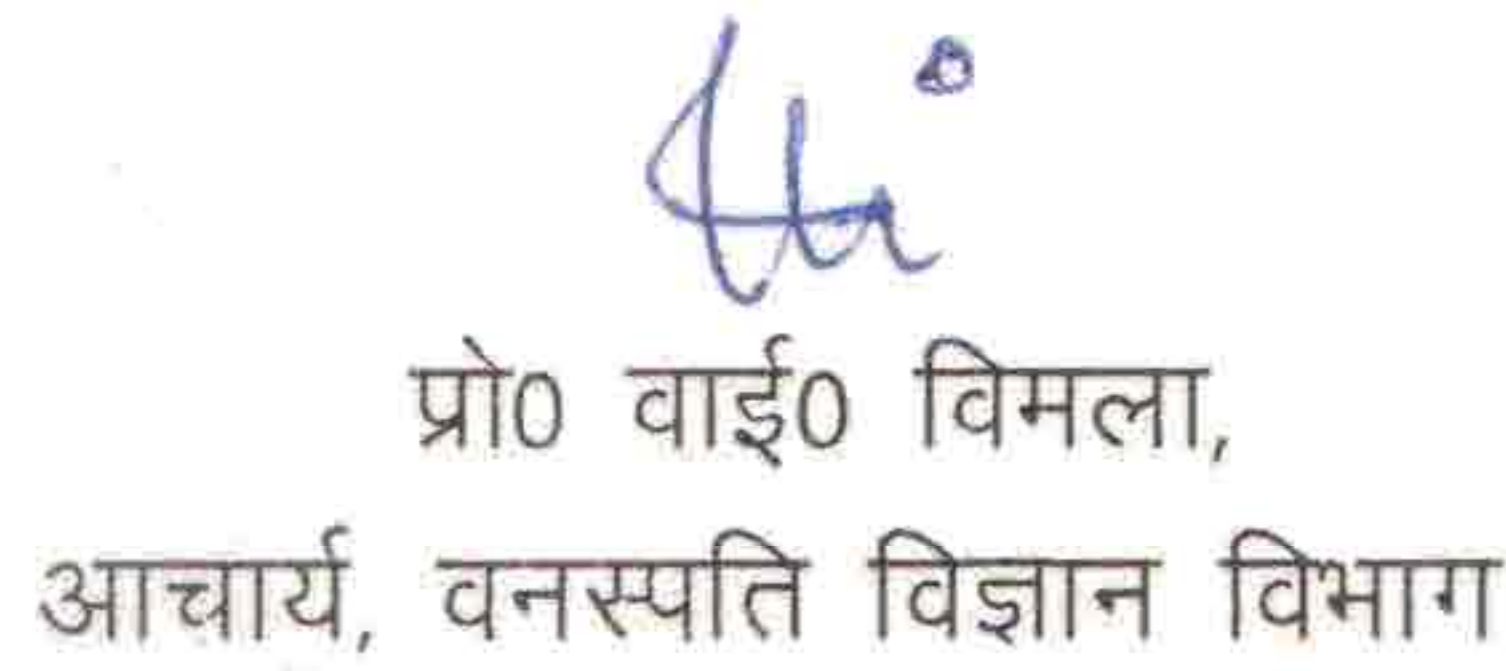 प्रो0 वाई0 विमला,
आचार्य, वनस्पति विज्ञान विभाग